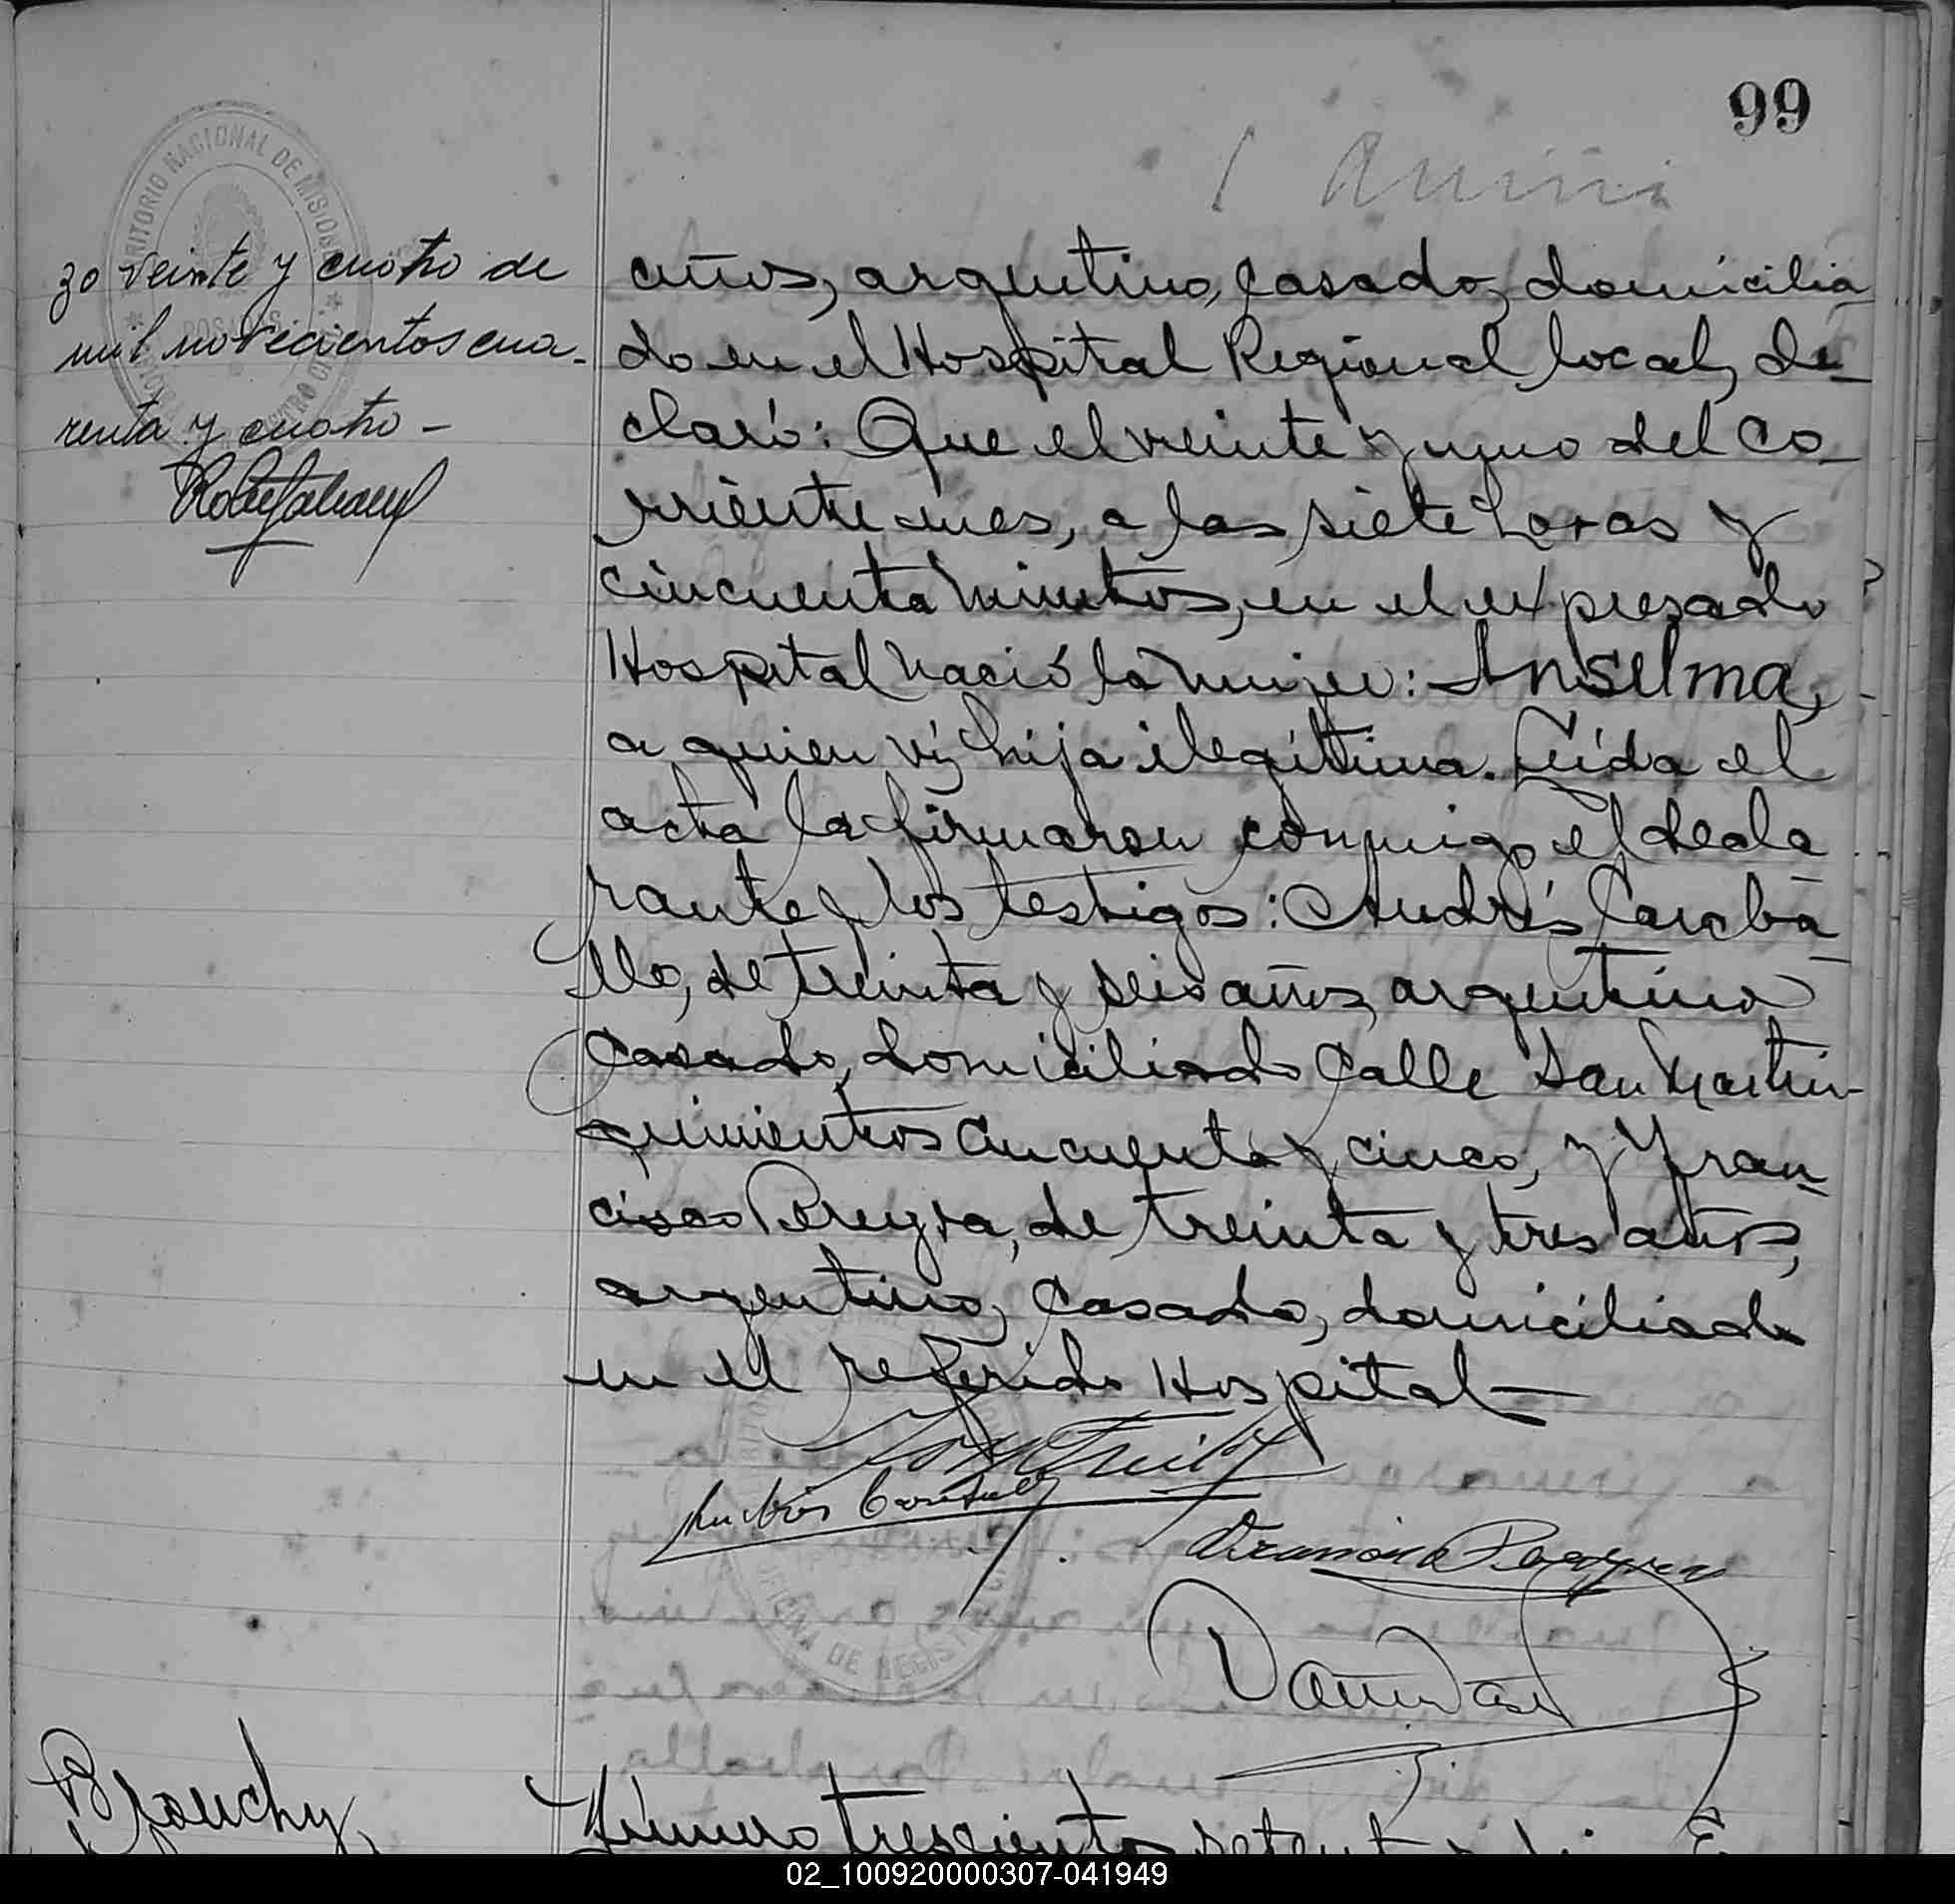 99
TERRITORIO NACIONAL DE MISIONES
zo veinte y cuatro de
mil novecientos cua-
renta y cuatro -
años, argentino, casado, domicilia
do en el Hospital Regional local, de-
claró: Que el veinte y uno del co-
rriente mes, a las siete horas y
cincuenta minutos, en el expresado
Hospital nació la mujer: Anselma,
a quien ví, hija ilegítima. Leída el
acta la firmaron conmigo el decla
rante y los testigos: Andrés Caraba
llo, de treinta y seis años, argentino
casado, domiciliado calle San Martin
quinientos cincuenta y cinco, y Fran-
cisco Pereyra, de treinta y tres años,
argentino, casado, domiciliado
en el referido Hospital—
Francisco Pereyra
OFICINA DE REGISTRO
Número trescientos setent
02_100920000307-041949